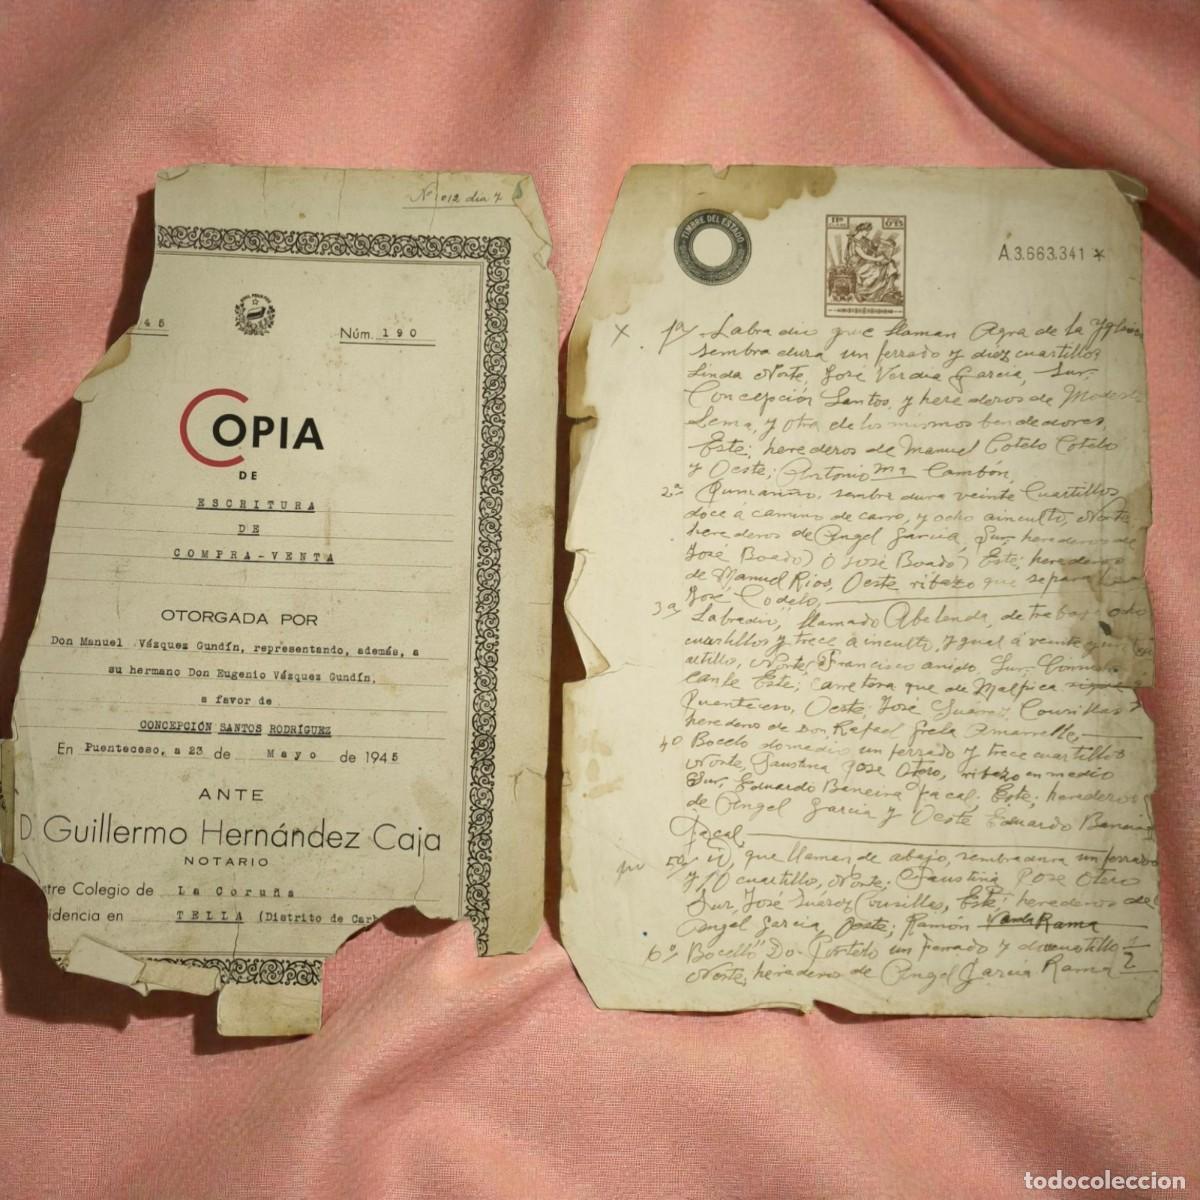 Nº 1012 dia 7
45
Núm. 190
COPIA
DE
ESCRITURA
DE
COMPRA-VENTA
OTORGADA POR
Don Manuel Vázquez Gundín, representando, además, a
su hermano Don Eugenio Vázquez Gundín,
a favor de
CONCEPCIÓN SANTOS RODRÍGUEZ
En Puenteceso, a 23 de Mayo de 1945
ANTE
D. Guillermo Hernández Caja
NOTARIO
stre Colegio de La Coruña
sidencia en TELLA (Distrito de Carb
TIMBRE DEL ESTADO
A.3.663.341 *
x 1ª Labradio que llaman Agra de la Yglesia
sembradura un ferrado y diez cuartillos
Linda Norte, José Verdia Garcia, Sur.
Concepción Santos, y herederos de Modesto
Lema, y otra de los mismos bendedores,
Este; herederos de Manuel Cotelo Cotelo
y Oeste; Antonio Mª Cambón,
2ª sembradura veinte Cuartillos
doce a camino de carro, y ocho ainculto, Norte
herederos de Angel Garcia Sur, herederos de
José Boado) ó José Boado) Este; herederos
de Manuel Rios, Oeste ribazo que separa
José Codelo,
3ª Labradio, llamado Abelenda, de trabajo ocho
cuartillos y trece á inculto, Ygual á veinte
Norte; Francisco anido, Sur,
Este; Carretera que de Malpica sigue
Puenteceso, Oeste, José Suarez Cousillas y
herederos de Don Rafael
4º Bocelo domedio un ferrado y trece cuartillos
Norte, Faustina Pose Otero, ribazo en medio
Sur, Eduardo Baneira Facal; Este; herederos
de Angel Garcia y Oeste Eduardo Baneira
Facal
5º que llaman de abajo, sembradura un ferrado
y 10 cuartillo, Norte; Faustina Pose Otero
Sur, José Suarez Cousillas, Este; herederos de
Angel Garcia, Oeste; Ramón Varela Rama
6º Bocello Do- un ferrado y cuartillo 1/2
Norte, herederos de Angel Garcia Rama
todocoleccion